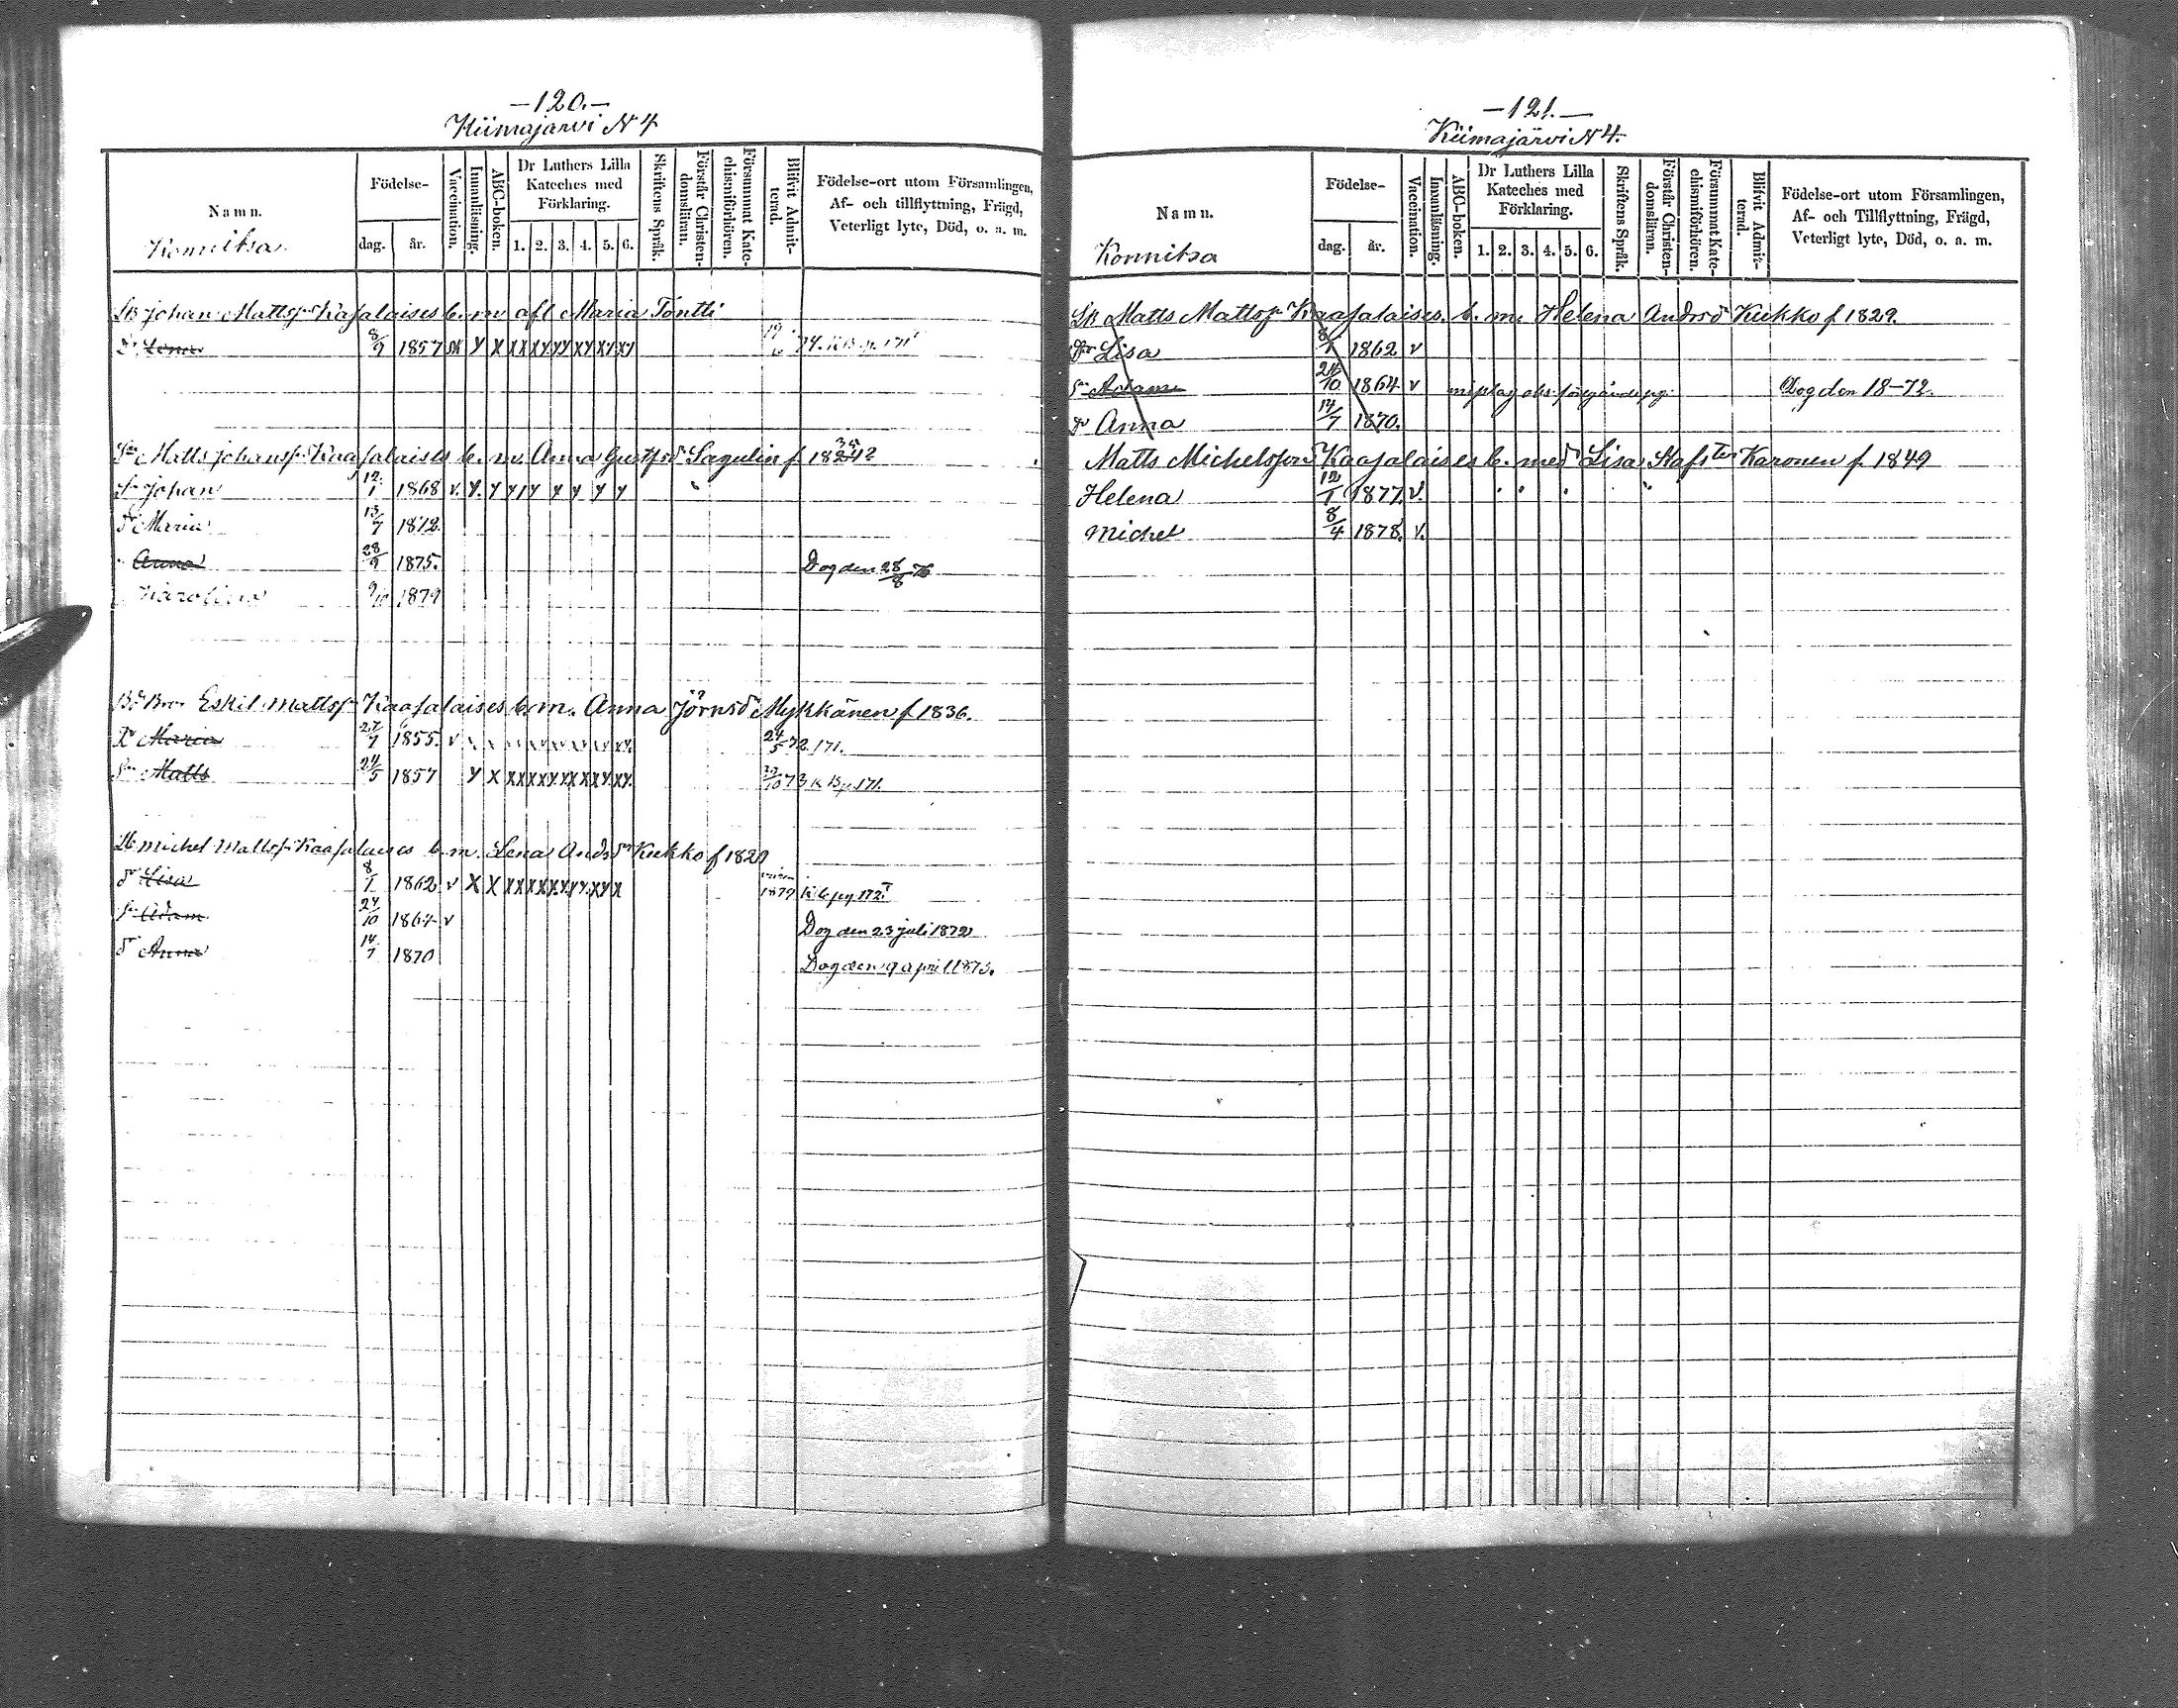 —120.—
Kiimajärvi N 4
Namn.
Födelse-
dag. år.
Vaccination.
Innanläsning.
ABC-boken.
Dr Luthers Lilla Kateches med Förklaring.
1. 2. 3. 4. 5. 6.
Skriftens Språk.
Förstår Christendomsläran.
Försummat Katechismiförhören.
Blifvit Admitterad.
Födelse-ort utom Församlingen, Af- och tillflyttning, Frägd, Veterligt lyte, Död, o. a. m.
Konnitsa
Johan Mattsp Kaasalaises b. m. afl Maria Töntti
Dr Lena 8/9 1857 Y X XX XY YY XY XY XY
Sn Matts Johansp Kaasalaises b. m. Anna Gustfsd Sagulin f
Sn Johan 12/1 1868 v. Y. Y Y Y Y Y Y Y
dr Maria 13/7 1872
Anna 28/9 1875. Dog den 28/8 76
Karolina 9/10 1879
Bror Eskil Mattsp Kaasalaises b. m. Anna Jörnsd Mykkänen f 1836.
Dr Maria 27/7 1855. v 24/5 72. 171.
Sn Matts 24/5 1857 Y X XX XX YY XX XY XY. 73 K B p 171.
Michel Mattsp Kaasalaises b. m. Lena Andsdr Kukko f 1829
dr Lisa 8/1 1862 v X X XX XX XY YY XY X 1879 K b pg 172
Sn Adam 24/10 1864 v Dog den 23 juli 1872
dr Anna 14/7 1870 Dog den 9 april 1873.
—121.—
Kiimajärvi N 4.
Namn.
Födelse-
dag. år.
Vaccination.
Innanläsning.
ABC-boken.
Dr Luthers Lilla Kateches med Förklaring.
1. 2. 3. 4. 5. 6.
Skriftens Språk.
Förstår Christendomsläran.
Försummat Katechismiförhören.
Blifvit Admitterad.
Födelse-ort utom Församlingen, Af- och Tillflyttning, Frägd, Veterligt lyte, Död, o. a. m.
Konnitsa
Matts Mattsp Kaasalaises. b. m. Helena Andrsd Kukko f 1829.
Lisa 8/1 1862 v
Sn Adam 24/10 1864 v Dog den 18-72.
dr Anna 14/7 1870.
Matts Michelsson Kaasalaises b. med Lisa Stafs ter Karonen f. 1849
Helena 12/1 1877. v.
Michel 8/4 1878. v.